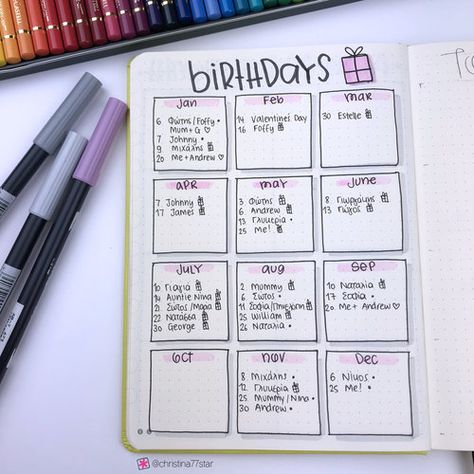 BiRTHDAYS
Jan
6 Φώτης/Foffy •
Mum+G ♡
7 Johnny •
9 Μιχάλης
20 Me+Andrew ♡
Feb
14 Valentines Day
16 Foffy
mar
30 Estelle
APR
7 Johnny
17 James
may
3 Φώτης
6 Andrew
13 Γλυκερία •
25 Me!
June
8 Γιωργάκης
13 Γιώργος
JULY
10 Γιαγιά
14 Auntie Nina
21 Σώτος/Μάρα
22 Νατάσσα
30 George
aug
2 Mummy
6 Σώτος •
15 William
26 Ναταλία •
Sep
10 Ναταλία
17 Σοφία •
20 Me + Andrew ♡
Oct
Nov
8 Μιχάλης •
12 Γλυκερία
25 Mummy/Nina •
30 Andrew •
Dec
6 Νίκος •
25 Me! •
@christina77star